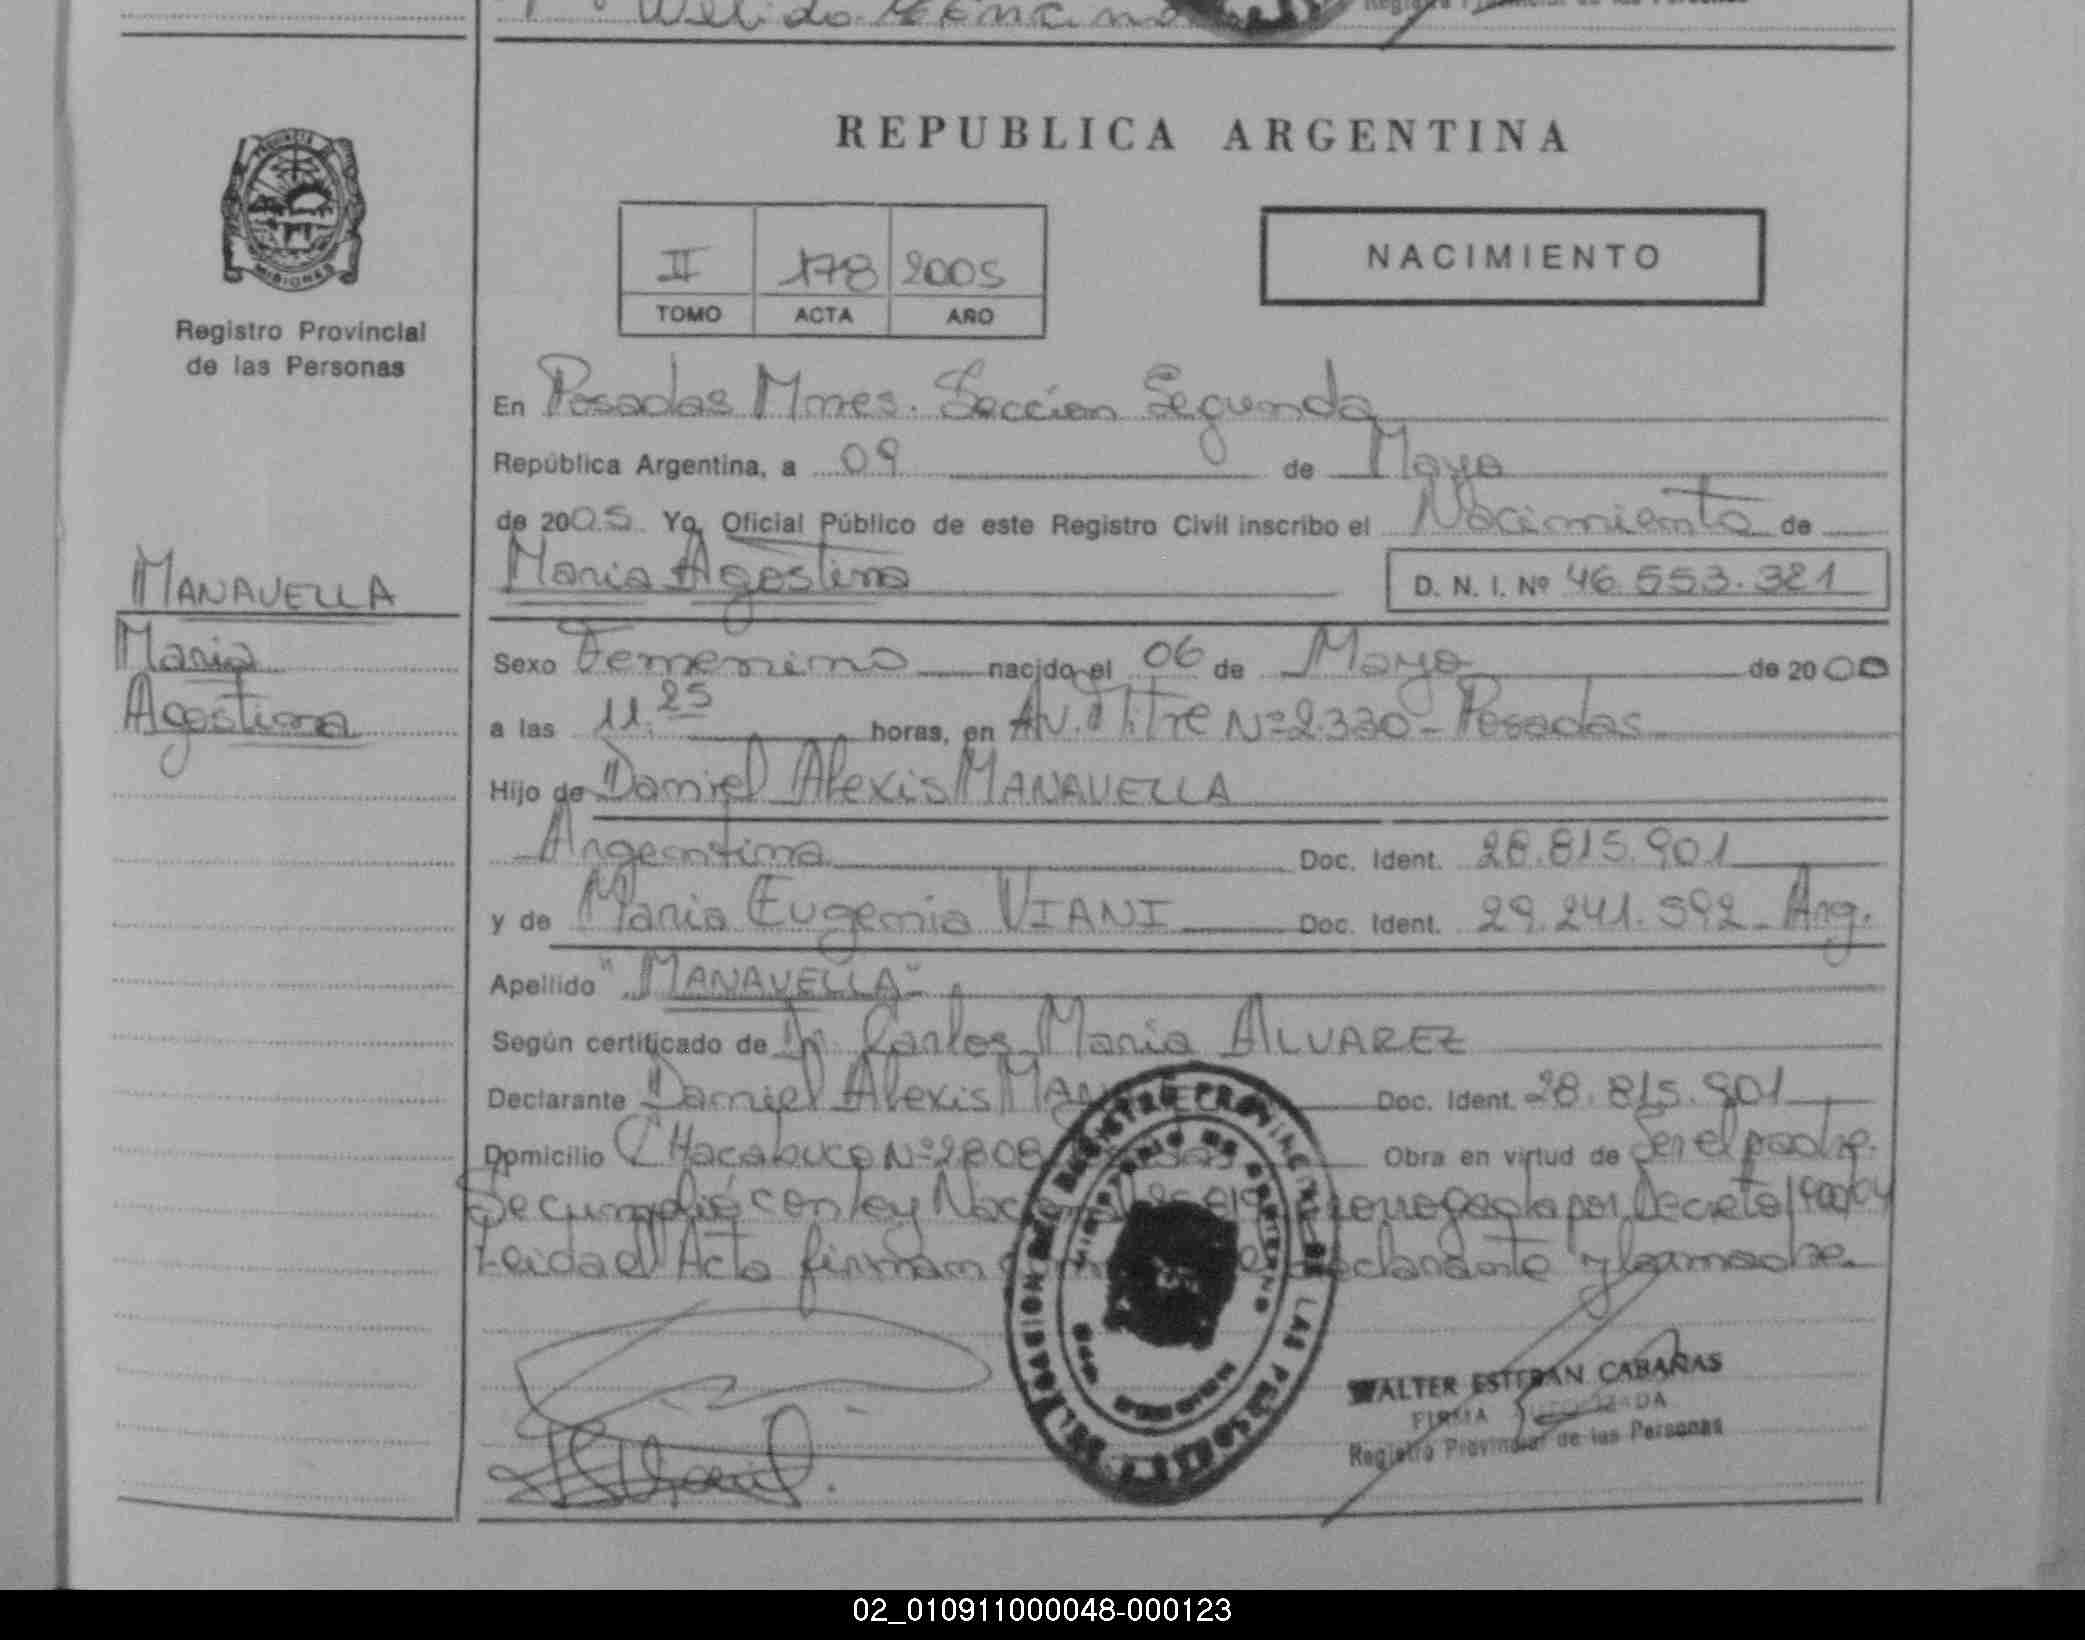 REPUBLICA ARGENTINA
MISIONES
Registro Provincial
de las Personas
II 178 2005
TOMO ACTA AÑO
NACIMIENTO
En Posadas Mnes. Sección Segunda
República Argentina, a 09 de Mayo
de 2005 Yo, Oficial Público de este Registro Civil inscribo el Nacimiento de
Maria Agostina
D. N. I. Nº 46.553.321
MANAVELLA
Maria
Agostina
Sexo Femenino nacido el 06 de Mayo de 2000
a las 11.25 horas, en AV. Mitre Nº 2.330 - Posadas
Hijo de Daniel Alexis MANAVELLA
Argentina Doc. Ident. 28.815.901
y de Maria Eugenia VIANI Doc. Ident. 29.241.592 - Arg.
Apellido "MANAVELLA"
Según certificado de Dr. Carlos Maria ALVAREZ
Declarante Daniel Alexis Doc. Ident. 28.815.901
Domicilio CHacabuco Nº 2808 Obra en virtud de Ser el padre.
Se cumplió con ley prorrogada por Decreto
Leida el Acta firman declarante y la madre.
WALTER ESTEBAN CABAÑAS
FIRMA AUTORIZADA
Registro Provincial de las Personas
02_010911000048-000123